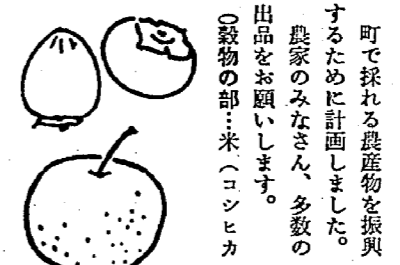 町で採れる農産物を振興
するために計画しました。
農家のみなさん、多数の
出品をお願いします。
○穀物の部…米（コシヒカ